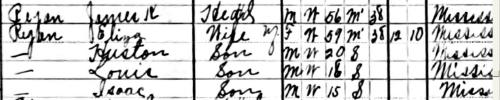 Ryan James K Head M W 56 M 38 Mississ
Ryan Eliza Wife F W 59 M 38 12 10 Mississ
— Huston Son M W 20 S Mississ
— Louis Son M W 18 S Missis
— Isaac Son M W 15 S Miss